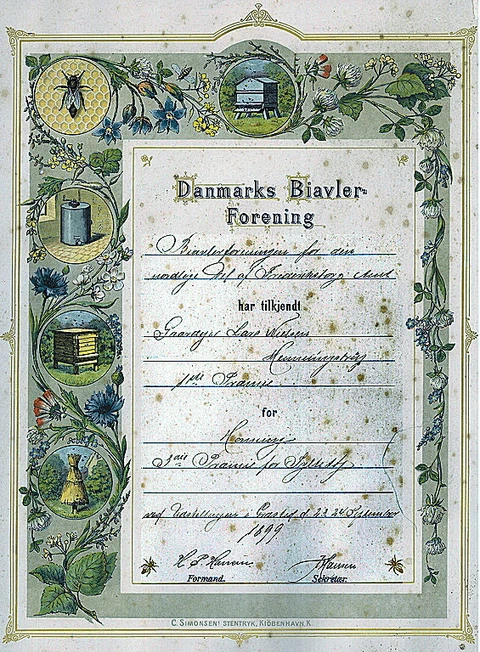 Danmarks Biavler-
Forening
Biavlerforeningen for den
nordlige Del af Frederiksborg Amt
har tilkjendt
Gaardejer Lars Nielsen
1ste Præmie
for
Honning
Præmie for
ved Udstillingen i Græsted d. 23 24 September
1899
H. P. Hansen
Hansen
Formand.
Sekretær.
C. SIMONSENS STENTRYK, KIÖBENHAVN. K.